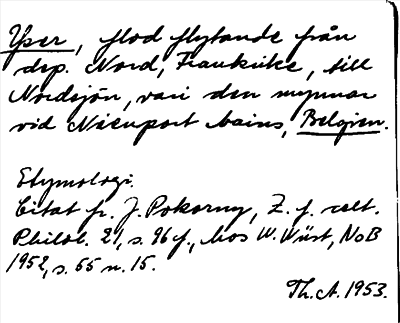 Yser, flod flytande från
dep. Nord, Frankrike, till
Nordsjön, vari den mynnar
vid Nieuport bains, Belgien.
Etymologi.
Citat fr. J. Pokorny, Z. f. celt.
Philol. 21, s. 96 f., hos W. Wüst, NoB
1952, s. 65 n. 15.
Th. A. 1953.